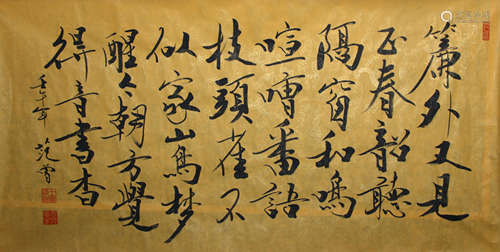 簾外又見
正春韶聽
隔窗和鳴
喧嘈番語
枝頭雀不
似家山鳥夢
醒今朝方覺
得音書杳
壬午年 范曾